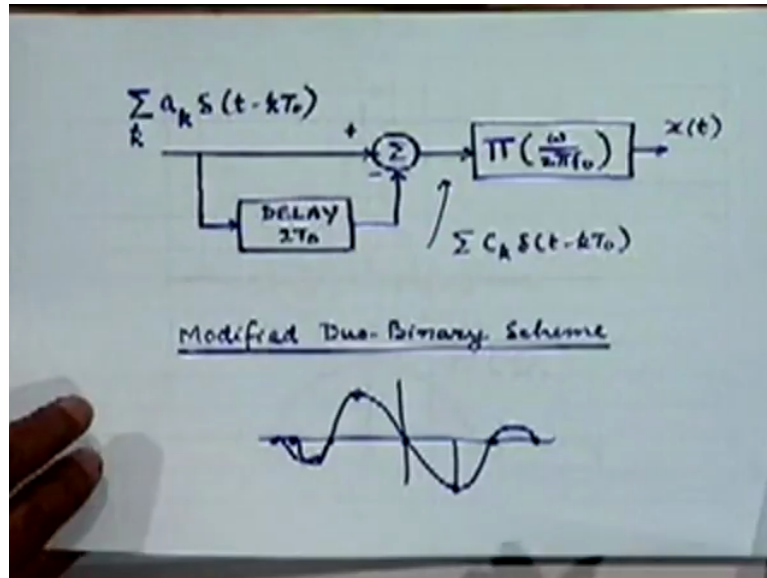 ∑ aₖ δ(t - kT₀)
k
+
-
Σ
Π(ω/2πf₀)
x(t)
DELAY
2T₀
∑ Cₖ δ(t - kT₀)
Modified Duo-Binary Scheme